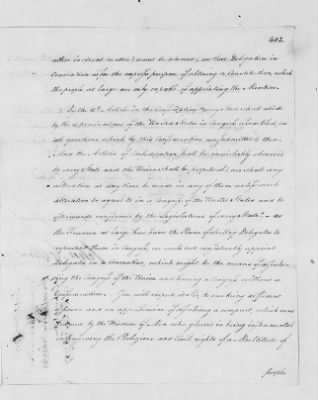 602
other in
must be
or that Delegation in
Convention is for the express purpose of altering a Constitution, which
the people at large are only capable of appointing the Members.
By the 13th Article in the Confederation "every State shall abide
by the determinations of the United States in Congress assembled, on
all questions which by this Confederation are submitted to them.
And the Articles of Confederation shall be inviolably observed
by every State and the Union shall be perpetual: nor shall any
alteration at any time be made in any of them unless such
alteration be agreed to in a Congress of the United States and be
afterwards confirmed by the Legislatures of every State." As
the Freemen at large here have the Power of electing Delegates to
represent them in Congress, we could not consistently appoint
Delegates in a Convention, which might be the means of dissolv-
ing the Congress of the Union and having a Congress without a
Confederation. You will impute it, Sir, to our being diffident
of power and an apprehension of dissolving a compact, which was
framed by the Wisdom of Men who gloried in being instrumental
in preserving the Religious and Civil rights of a Multitude of
people